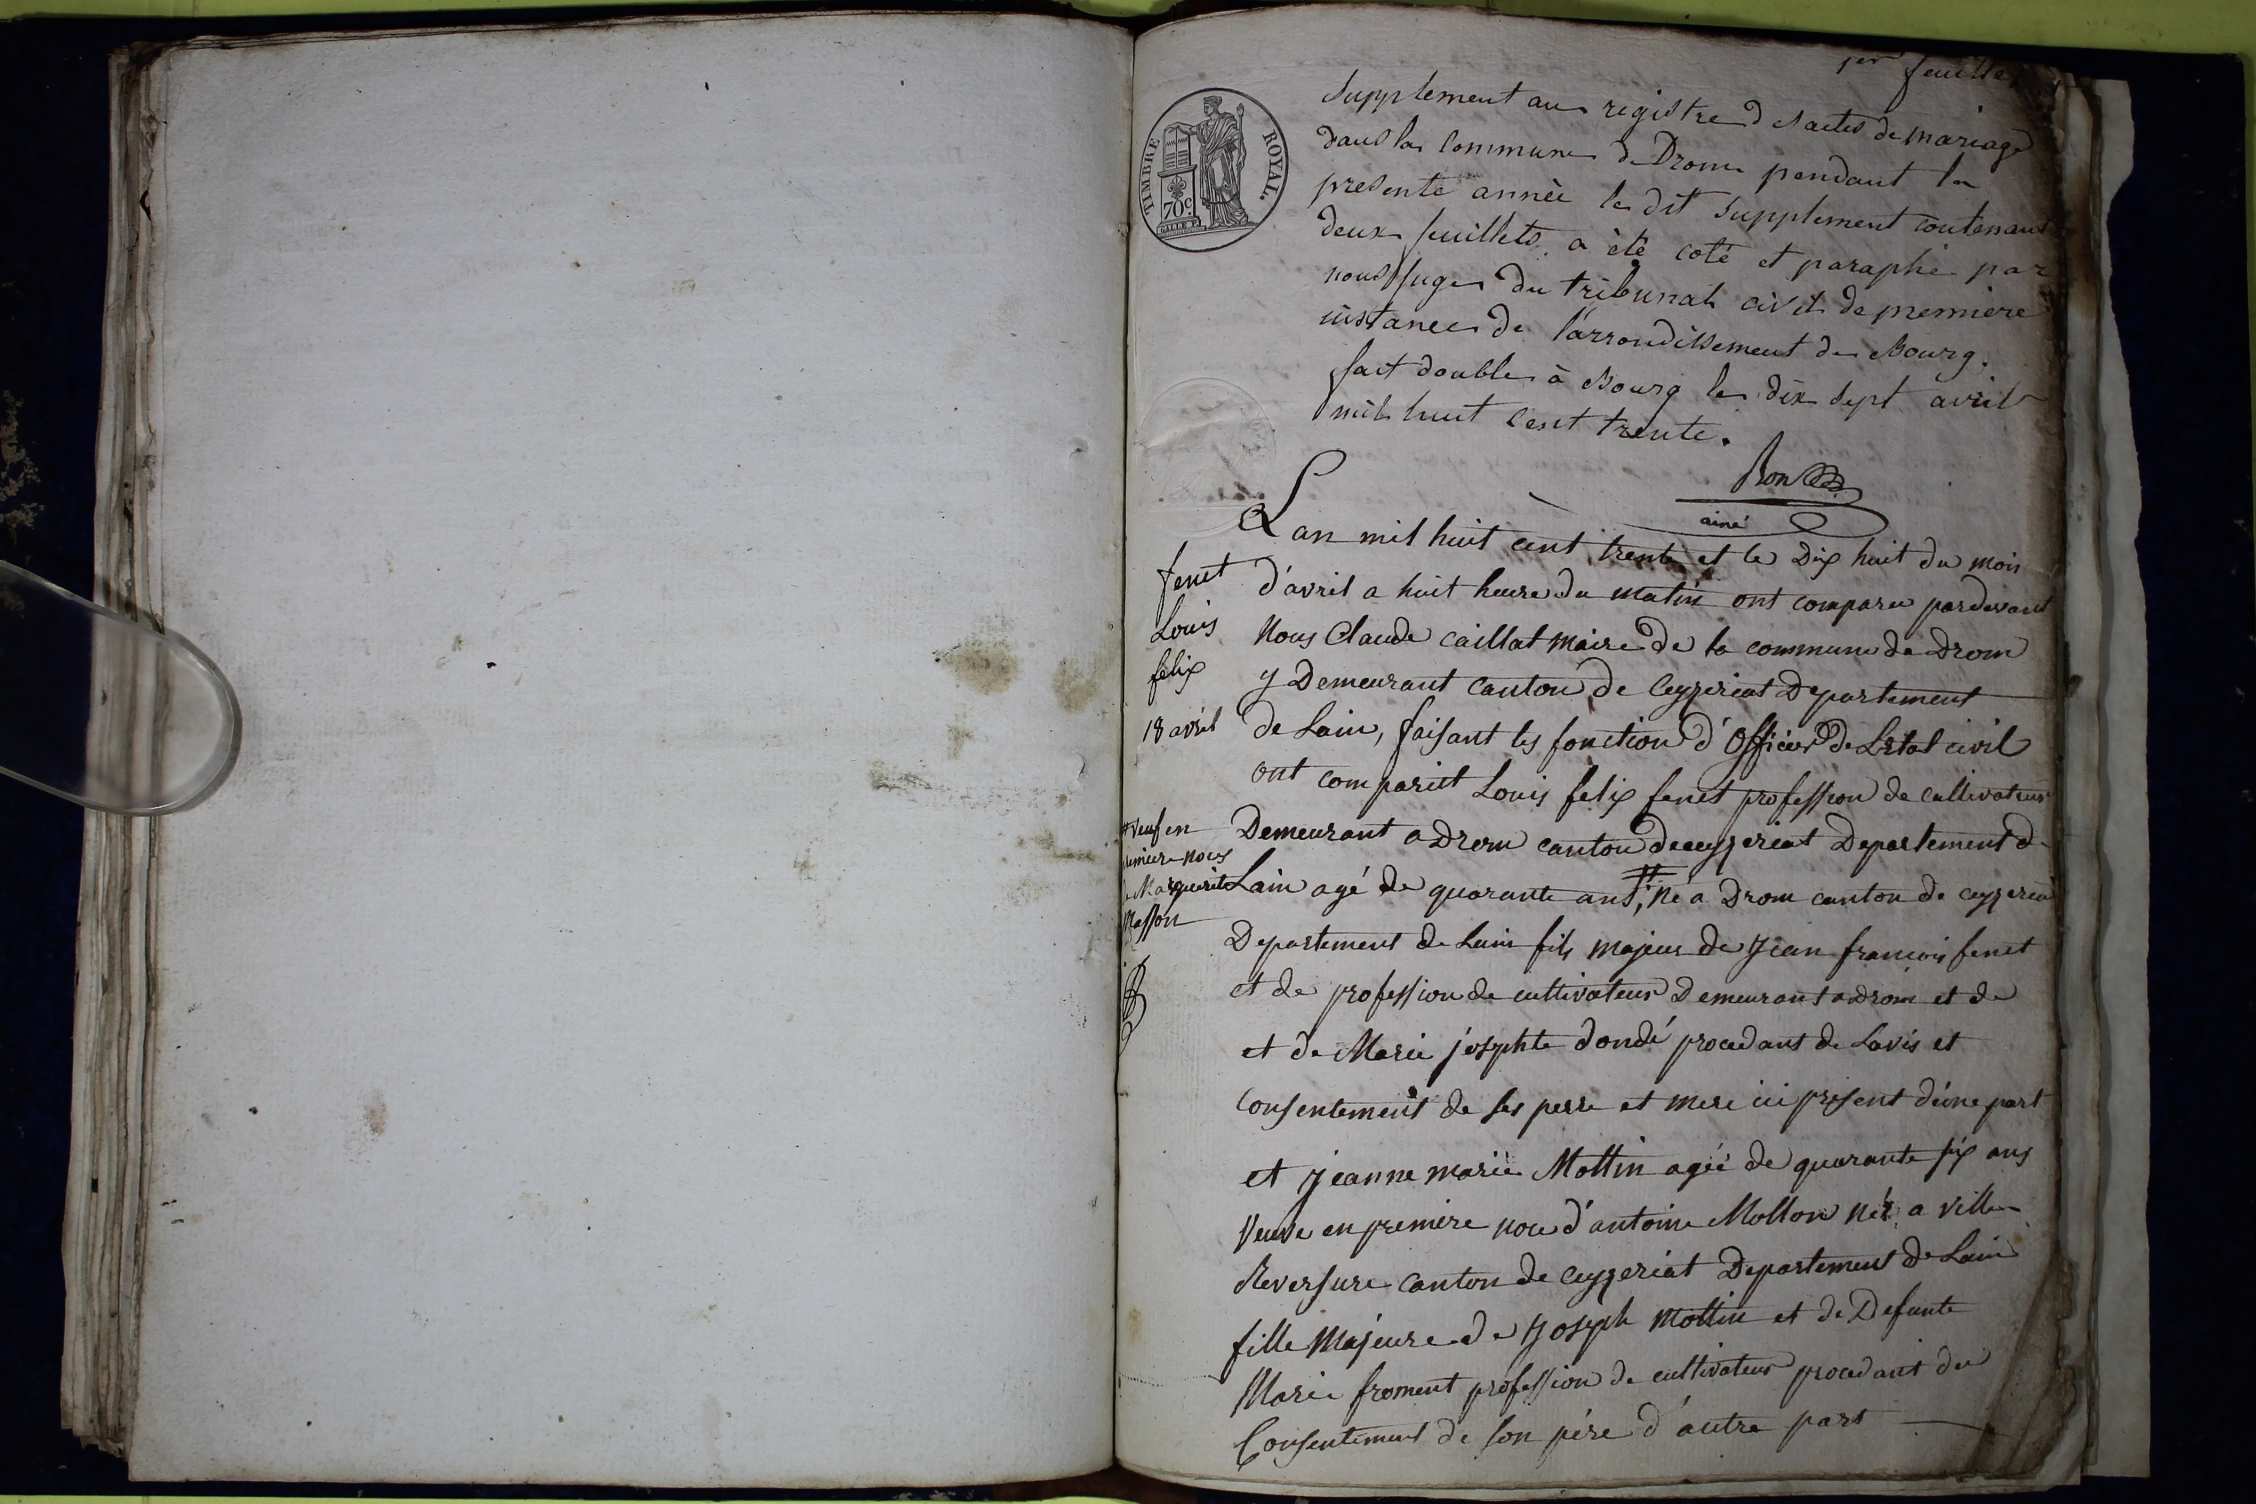 1er feuillet
TIMBRE ROYAL.
70c.
Supplement au registre d'es actes de mariage
dans la commune de Drom pendant la
presente année le dit supplement contenant
deux feuillets, a été coté et paraphé par
nous juge du tribunal civil de premiere
instance de l'arrondissement de Bourg.
fait double à Bourg le dix sept avril
mil huit cent trente.
ainé
Lan mil huit cent trente et le Dix huit du mois
d'avril a huit heure du matin ont comparu pardevant
Nous Claude Caillat Maire de la commune de Drom
y Demeurant canton de Ceyzeriat Departement
de Lain, faisant les fonction d'Officier de Letat civil
ont comparut Louis felix fenet profession de cultivateur
Demeurant a Drom canton de ceyzeriat Departement de
Lain agé de quarante ans, # né a Drom canton de ceyzeriat
Departement de Lain fils majeur de Jean francois fenet
et de profession de cultivateur Demeurant a Drom et de
et de Marie josephte dondé procedant de Lavis et
Consentement de ses perre et mere ici present d'une part
et Jeanne marie Mottin agée de quarante six ans
Veuve en premiere noce d'antoine Mollon née a ville
Reversure canton de ceyzeriat Departement de Lain
fille Majeure de Joseph Mottin et de Defunte
Marie froment profession de cultivateur procedant du
Consentement de son père d'autre part
fenet
Louis
felix
18 avril
# veuf en
premiere noces
de Marguerite
Masson